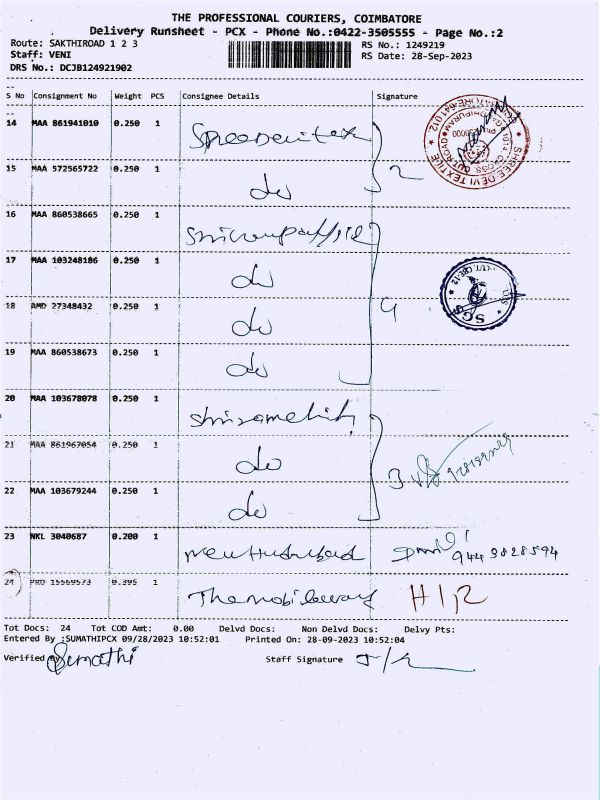 THE PROFESSIONAL COURIERS, COIMBATORE
Delivery Runsheet - PCX - Phone No.:0422-3505555 - Page No.:2
Route: SAKTHIROAD 1 2 3 RS No.: 1249219
Staff: VENI RS Date: 28-Sep-2023
DRS No.: DCJB124921902
S No Consignment No Weight PCS Consignee Details Signature
14 MAA 861941010 0.250 1
15 MAA 572565722 0.250 1 do 2
16 MAA 860538665 0.250 1
17 MAA 103248186 0.250 1 do
18 AMD 27348432 0.250 1 do 4
19 MAA 860538673 0.250 1 do
20 MAA 103678078 0.250 1
21 MAA 861967054 0.250 1 do 3
22 MAA 103679244 0.250 1 do
23 NKL 3040687 0.200 1 944 3828594
24 PKD 15569573 0.395 1 H/R
SHREE DEVI TEXTILE
SGS
Tot Docs: 24 Tot COD Amt: 0.00 Delvd Docs: Non Delvd Docs: Delvy Pts:
Entered By :SUMATHIPCX 09/28/2023 10:52:01 Printed On: 28-09-2023 10:52:04
Verified By Sumathi Staff Signature